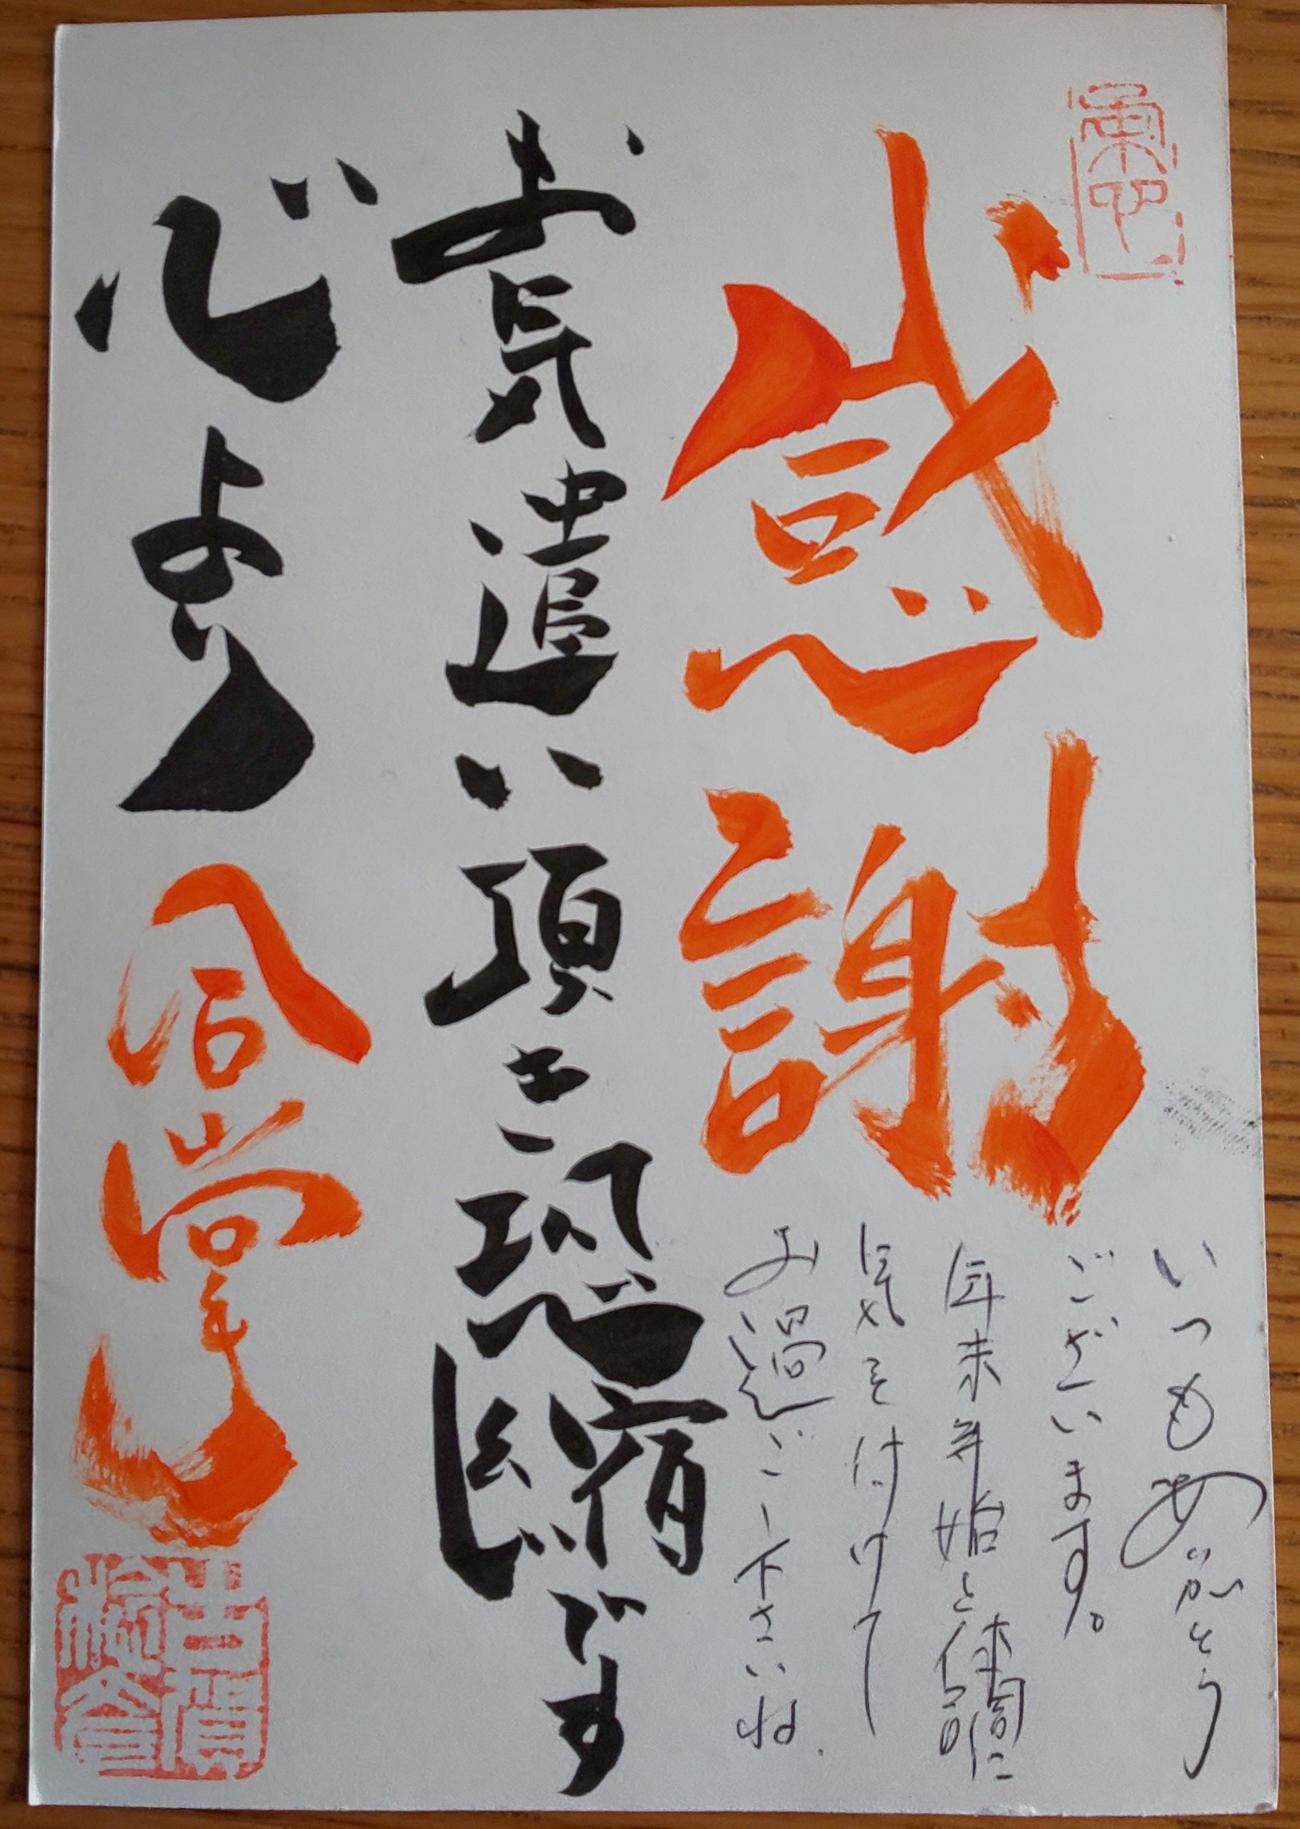 感謝
いつもありがとう
ございます。
年末年始と体調に
気を付けて
お過ごし下さいね.
お気遣い頂き恐縮です
心より
風掌
古賀